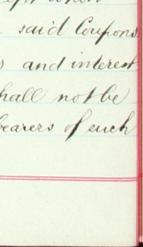 said Coupons
and interest
hall not be
bearers of such